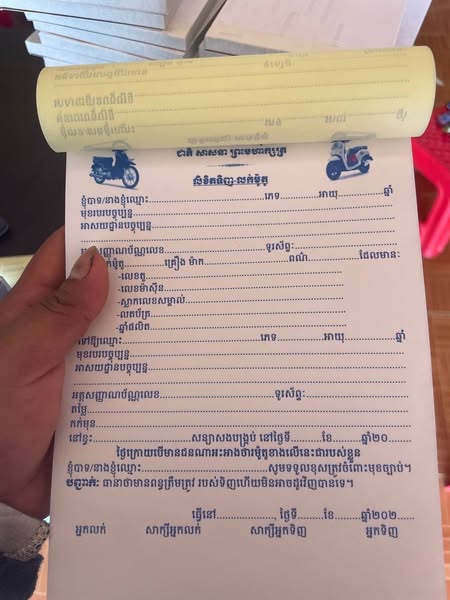 ជាតិ សាសនា ព្រះមហាក្សត្រ
លិខិតទិញ-លក់ម៉ូតូ
ខ្ញុំបាទ/នាងខ្ញុំឈ្មោះ..........ភេទ..........អាយុ..........ឆ្នាំ
មុខរបរបច្ចុប្បន្ន..........
អាសយដ្ឋានបច្ចុប្បន្ន..........
សញ្ញាណប័ណ្ណលេខ..........ទូរស័ព្ទ:..........
ក់ម៉ូតូ..........គ្រឿង ម៉ាក..........ពណ៌..........ដែលមាន:
-លេខតួ..........
-លេខម៉ាស៊ីន..........
-ស្លាកលេខសម្គាល់..........
-លតប័ត្រ..........
-ឆ្នាំផលិត..........
ទៅឱ្យឈ្មោះ..........ភេទ..........អាយុ..........ឆ្នាំ
មុខរបរបច្ចុប្បន្ន..........
អាសយដ្ឋានបច្ចុប្បន្ន..........
អត្តសញ្ញាណប័ណ្ណលេខ..........ទូរស័ព្ទ:..........
តម្លៃ..........
កក់មុន..........
នៅខ្វះ..........សន្យាសងបង្គ្រប់ នៅថ្ងៃទី..........ខែ..........ឆ្នាំ២០..........
ថ្ងៃក្រោយបើមានជនណាអះអាងថារម៉ូតូខាងលើនេះជារបស់ខ្លួន
ខ្ញុំបាទ/នាងខ្ញុំឈ្មោះ..........សូមទទួលខុសត្រូវចំពោះមុខច្បាប់។
បញ្ជាក់: ធានាថាមានពន្ធត្រឹមត្រូវ របស់ទិញហើយមិនអាចដូរវិញបានទេ។
ធ្វើនៅ.........., ថ្ងៃទី..........ខែ..........ឆ្នាំ២០២..........
អ្នកលក់ សាក្សីអ្នកលក់ សាក្សីអ្នកទិញ អ្នកទិញ